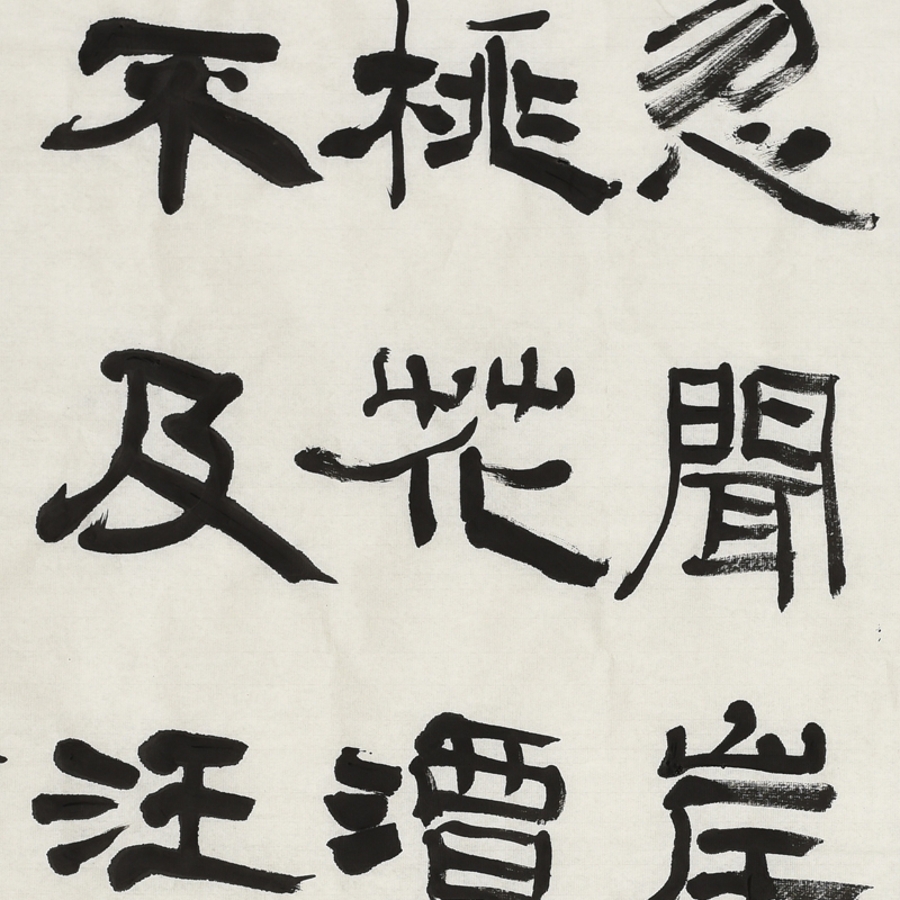 忽聞岸
桃花潭
不及汪